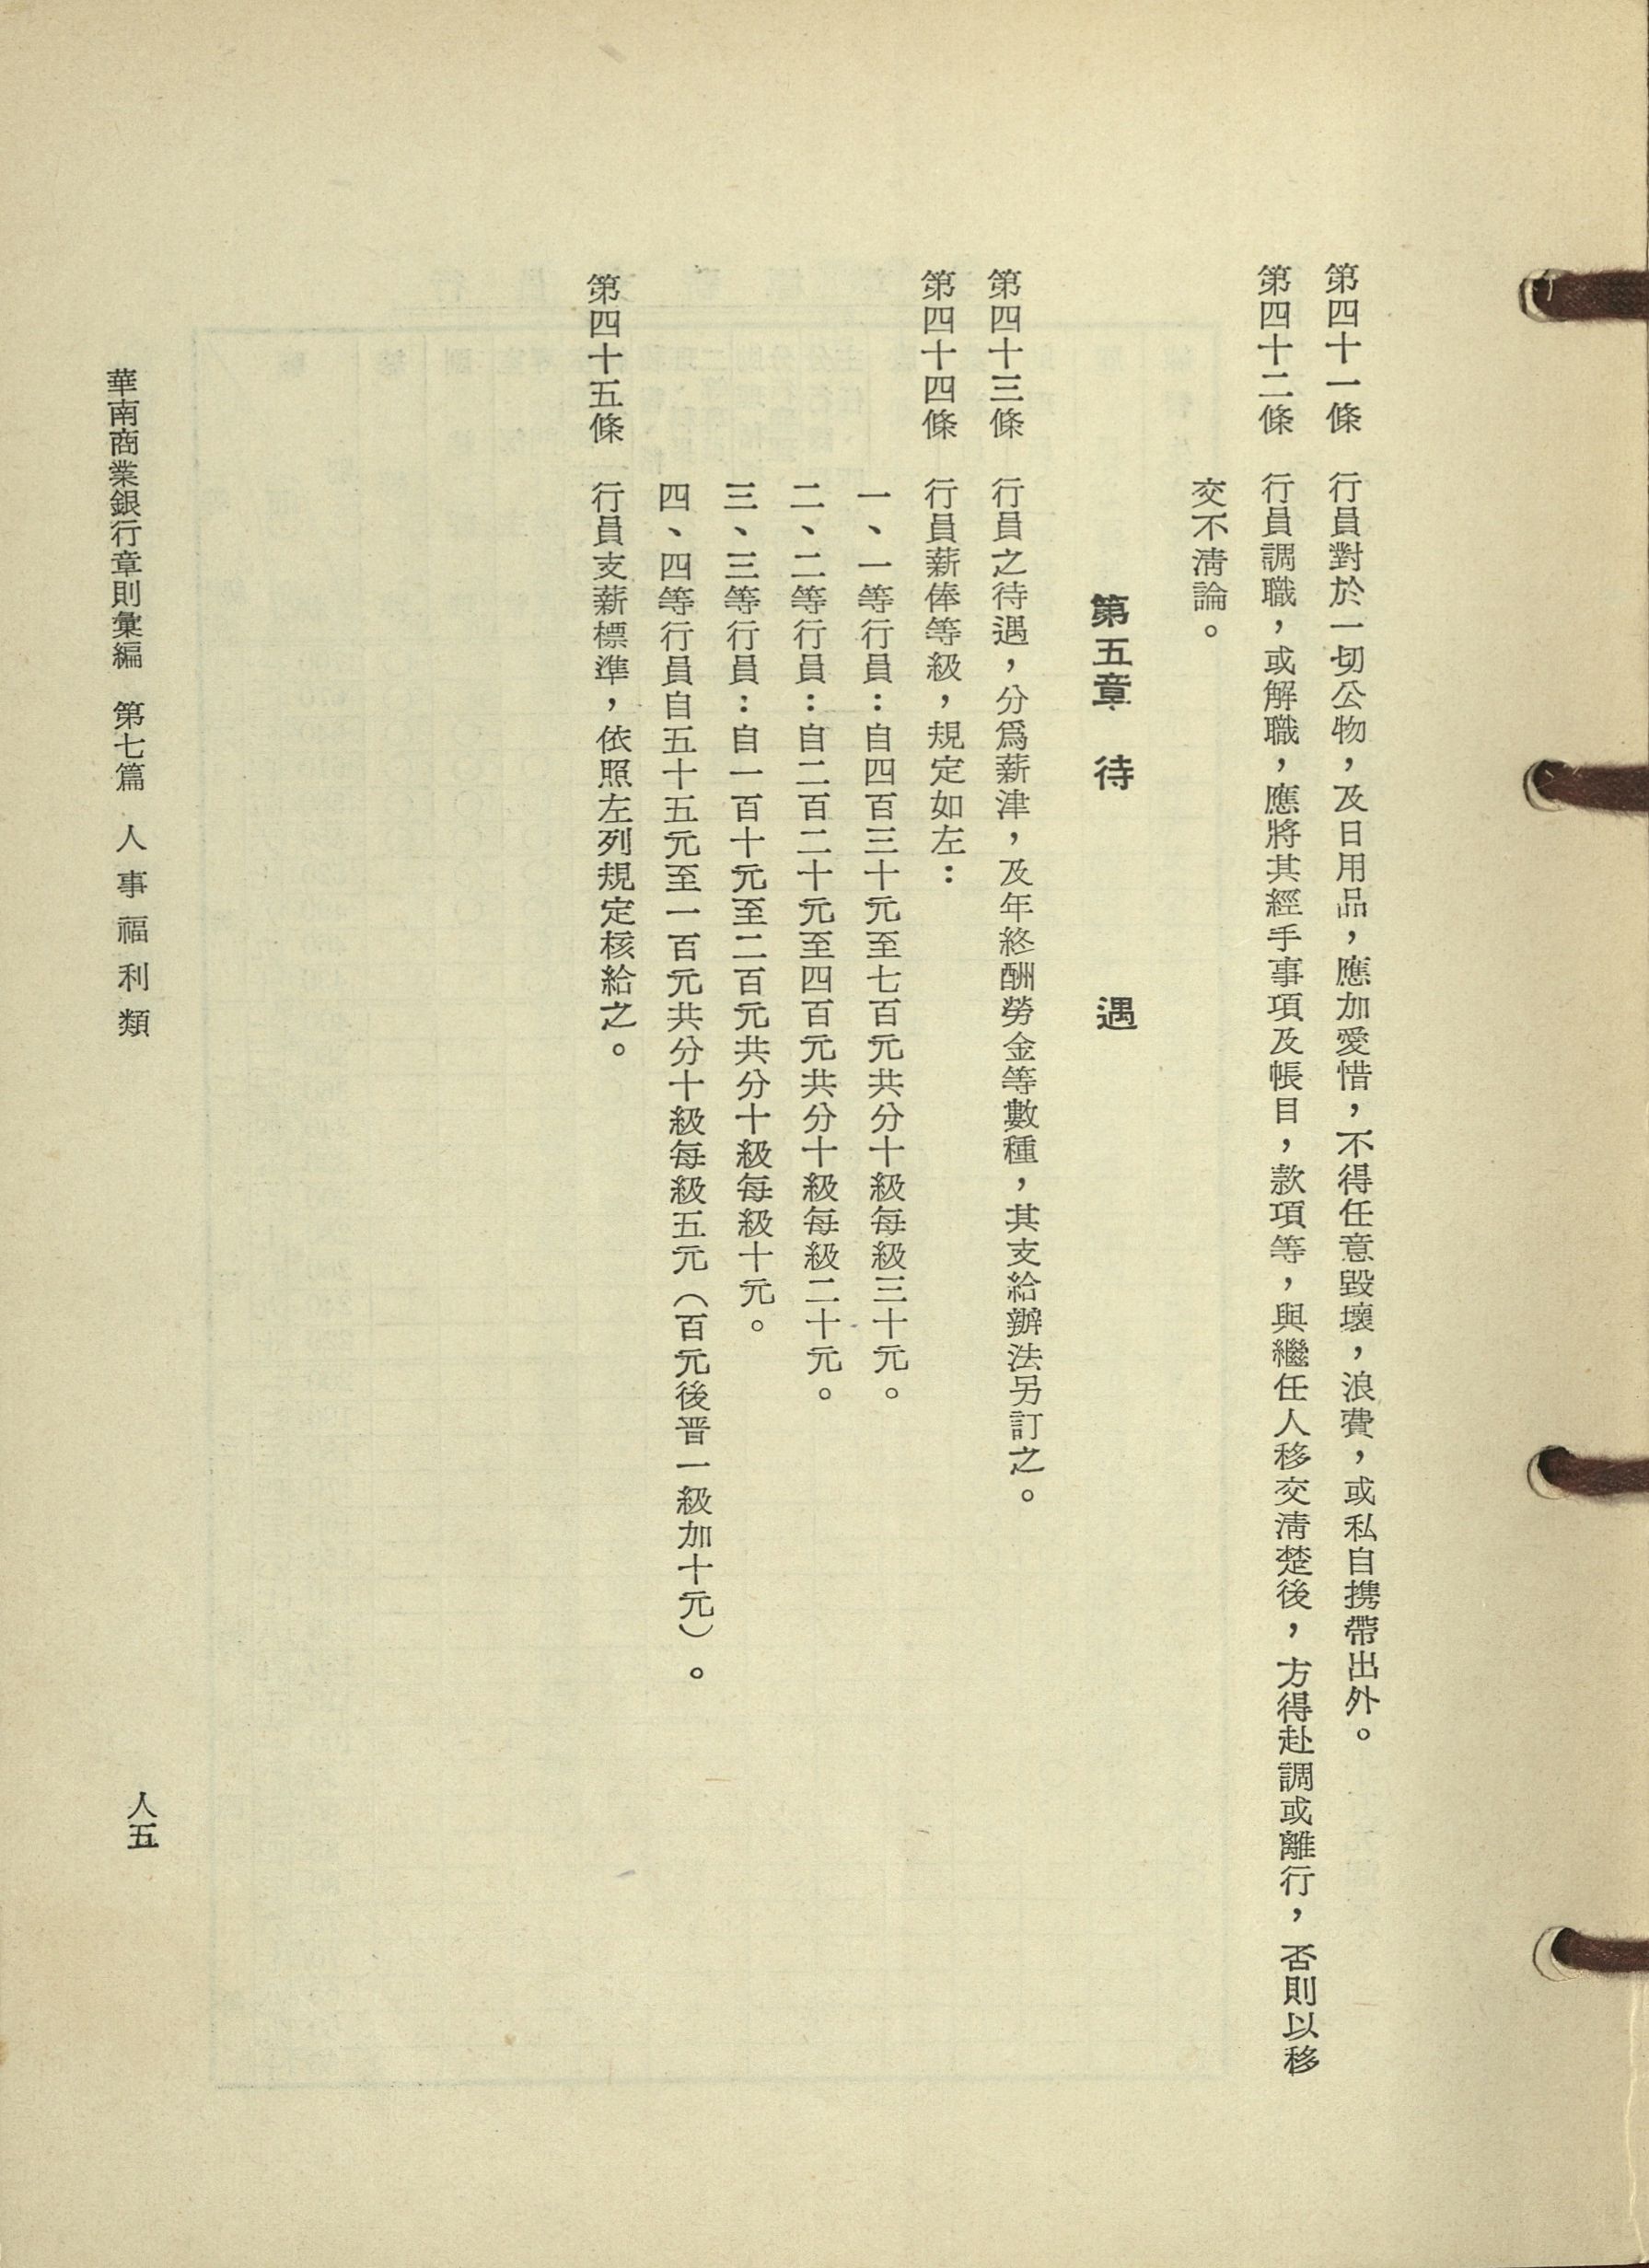 第四十一條　行員對於一切公物，及日用品，應加愛惜，不得任意毀壞，浪費，或私自携帶出外。
第四十二條　行員調職，或解職，應將其經手事項及帳目，款項等，與繼任人移交淸楚後，方得赴調或離行，否則以移
交不淸論。
第五章　待　遇
第四十三條　行員之待遇，分爲薪津，及年終酬勞金等數種，其支給辦法另訂之。
第四十四條　行員薪俸等級，規定如左：
一、一等行員：自四百三十元至七百元共分十級每級三十元。
二、二等行員：自二百二十元至四百元共分十級每級二十元。
三、三等行員：自一百十元至二百元共分十級每級十元。
四、四等行員自五十五元至一百元共分十級每級五元（百元後晋一級加十元）。
第四十五條　行員支薪標準，依照左列規定核給之。
華南商業銀行章則彙編　第七篇　人事福利類
人五